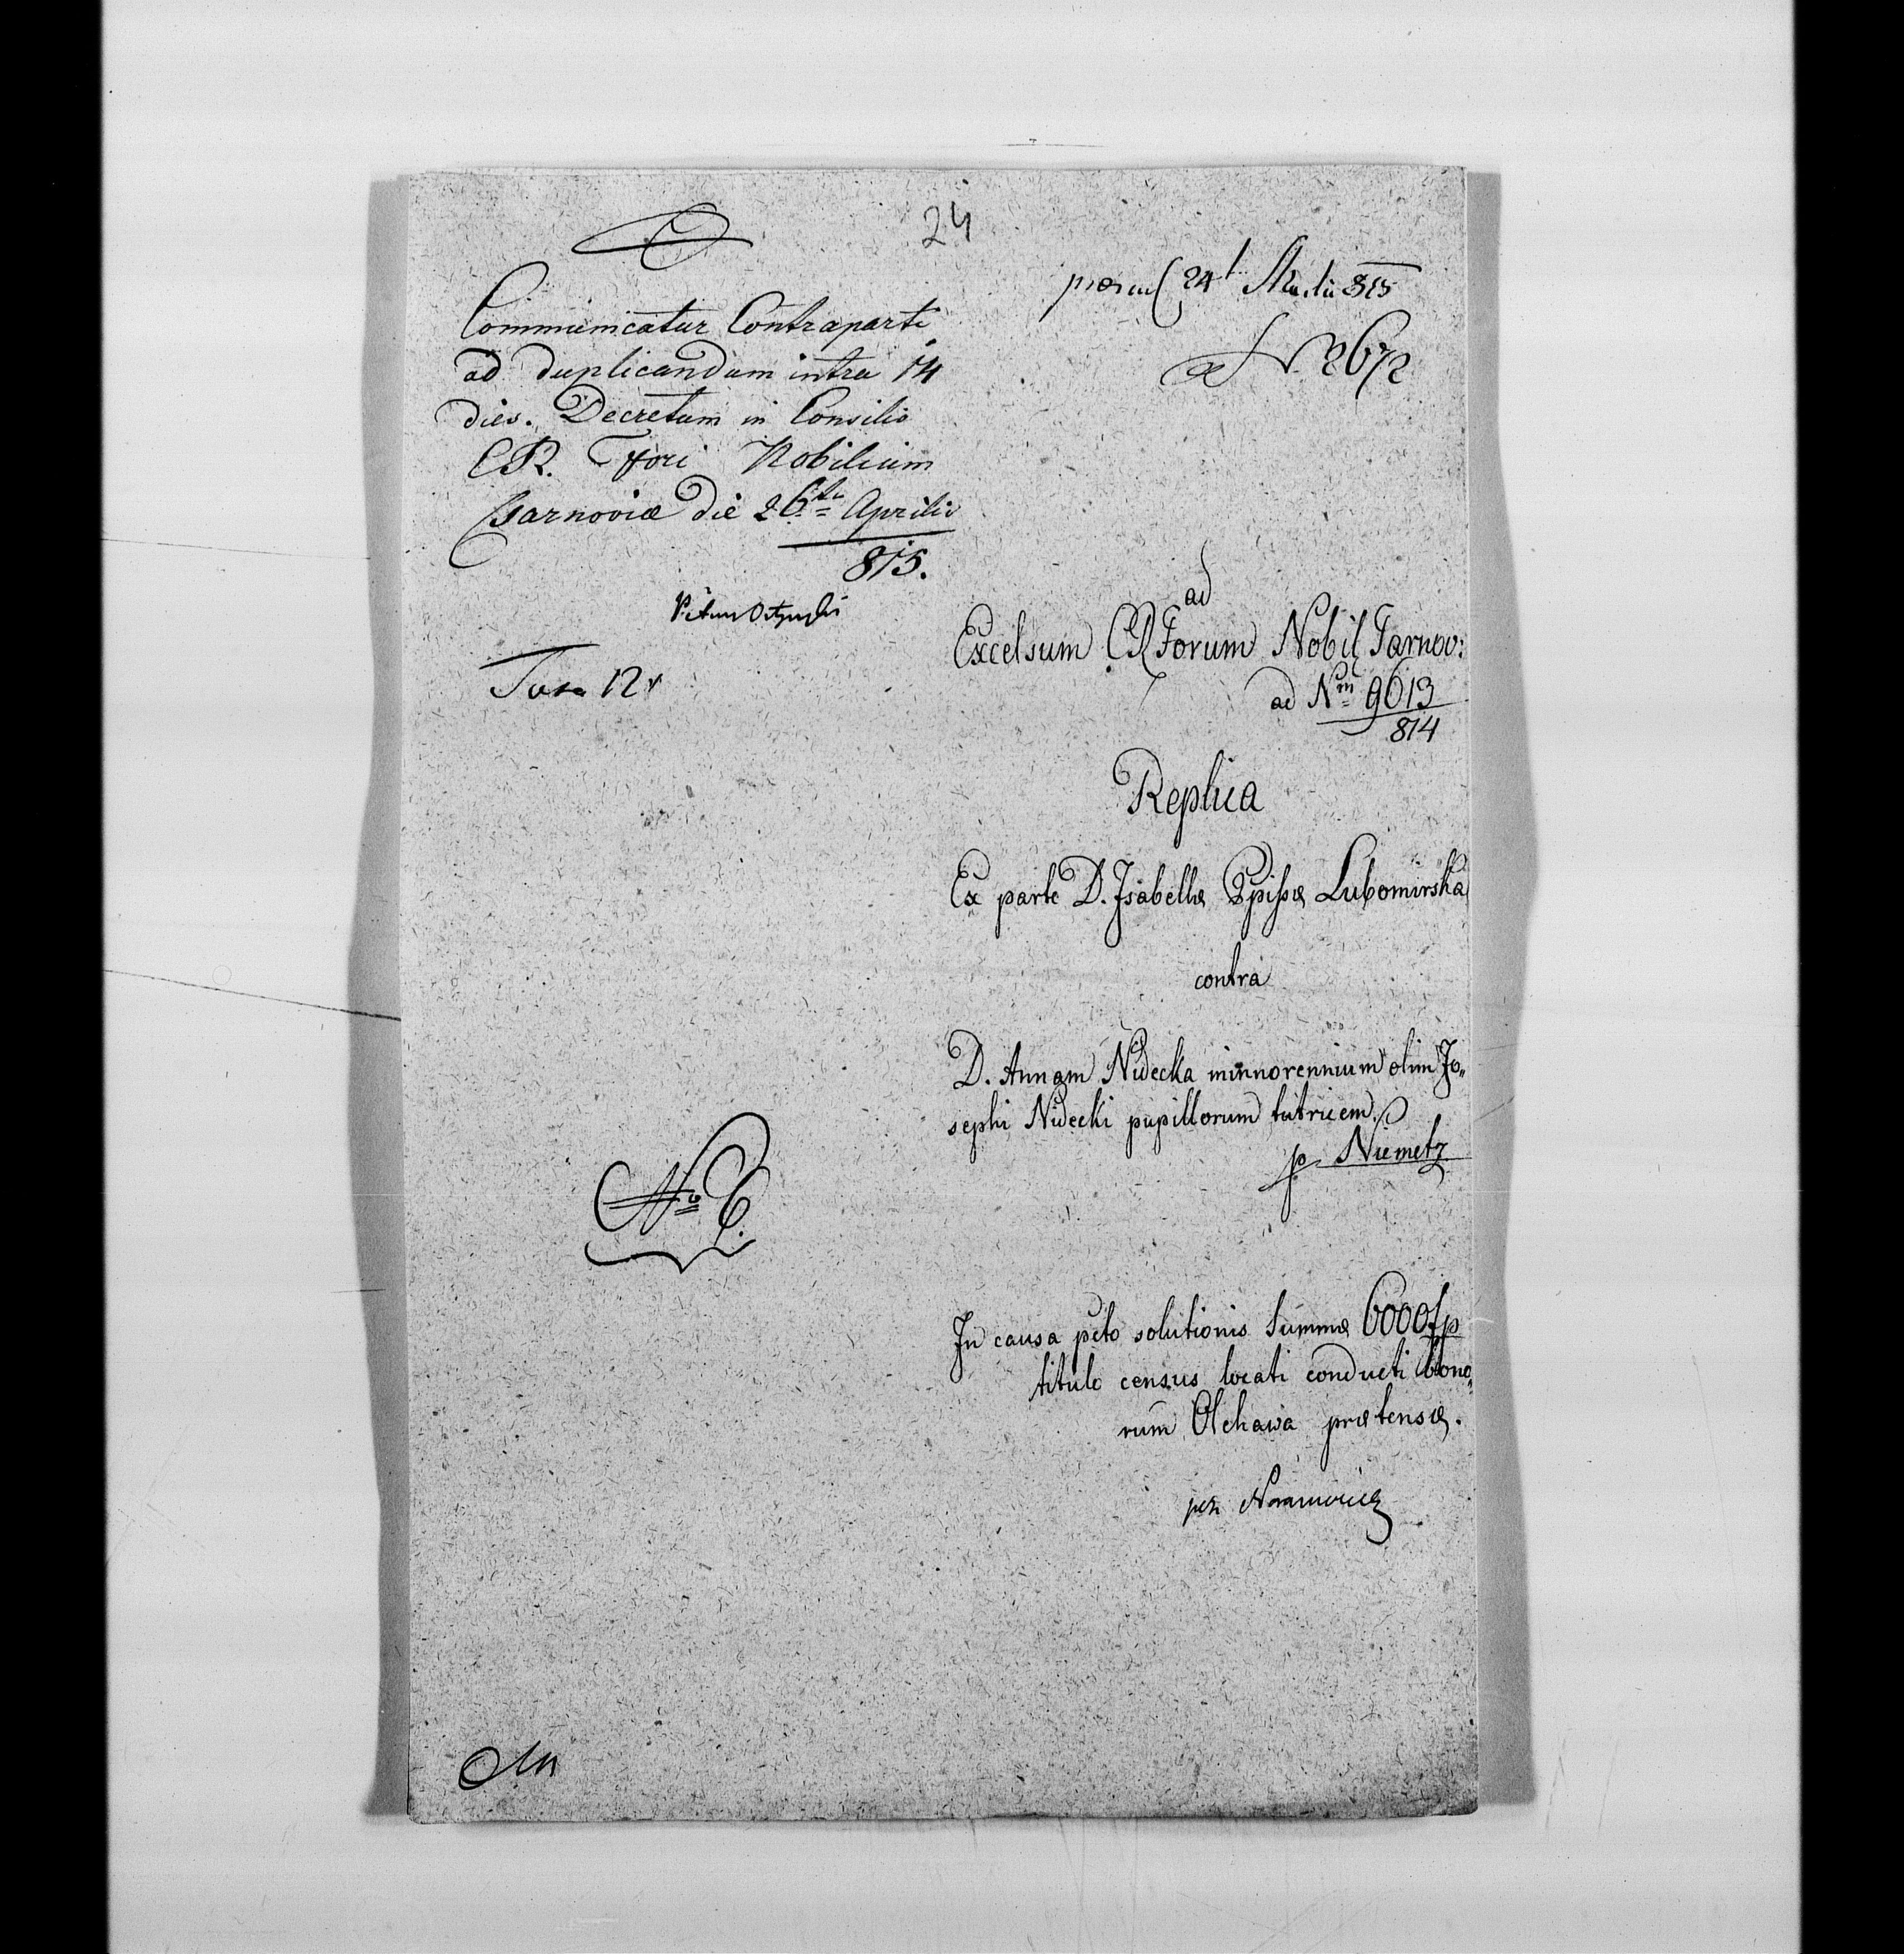 24
Communicatur Contraparti
ad duplicandum intra 14
dies. Decretum in Consilio
CR. Fori Nobilium
Tarnoviæ die 26ta Aprilis
815.
Taxa 12 r
praes 24t 815
N 2672
ad
Excelsum CR Forum Nobil Tarnov:
ad Nm 9613
814
Replica
Ex parte D. Isabellæ Ppissæ Lubomirska
contra
D. Annam Nidecka minnorennium olim Jo„
sephi Nidecki pupillorum tutricem.
p. Niemetz
No C.
In causa pcto solutionis Summæ 6000 fp
titulo census locati conducti bono„
rum Olchawa prætensæ.
per